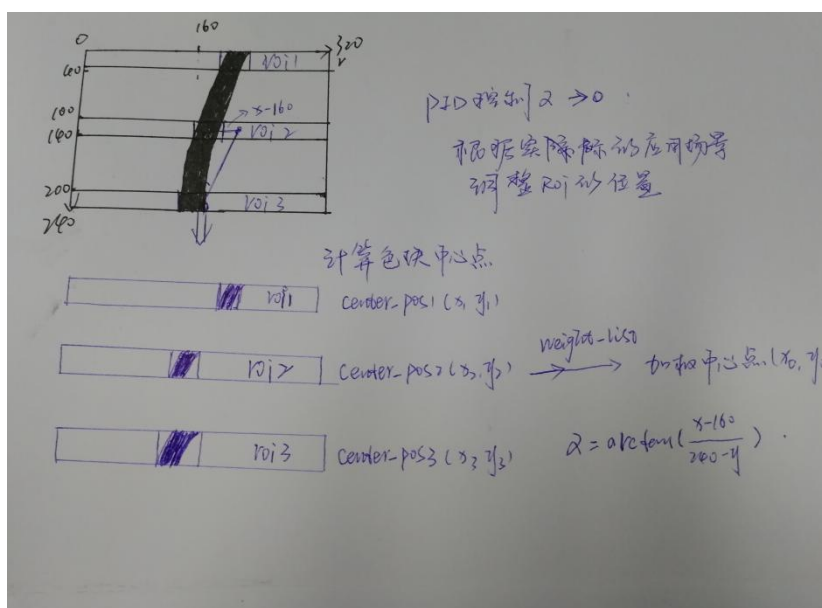 0 160 320
40 roi1
100 x-160
140 roi2
200 roi3
240
PID控制 α → 0
根据实际际的应用场景
调整ROi的位置
计算色块中心点
roi1 center_pos1 (x1 y1)
roi2 center_pos2 (x2, y2) weight_list 加权中心点 (x0, y
roi3 center_pos3 (x3 y3) α = arctan( x-160 / 240-y )